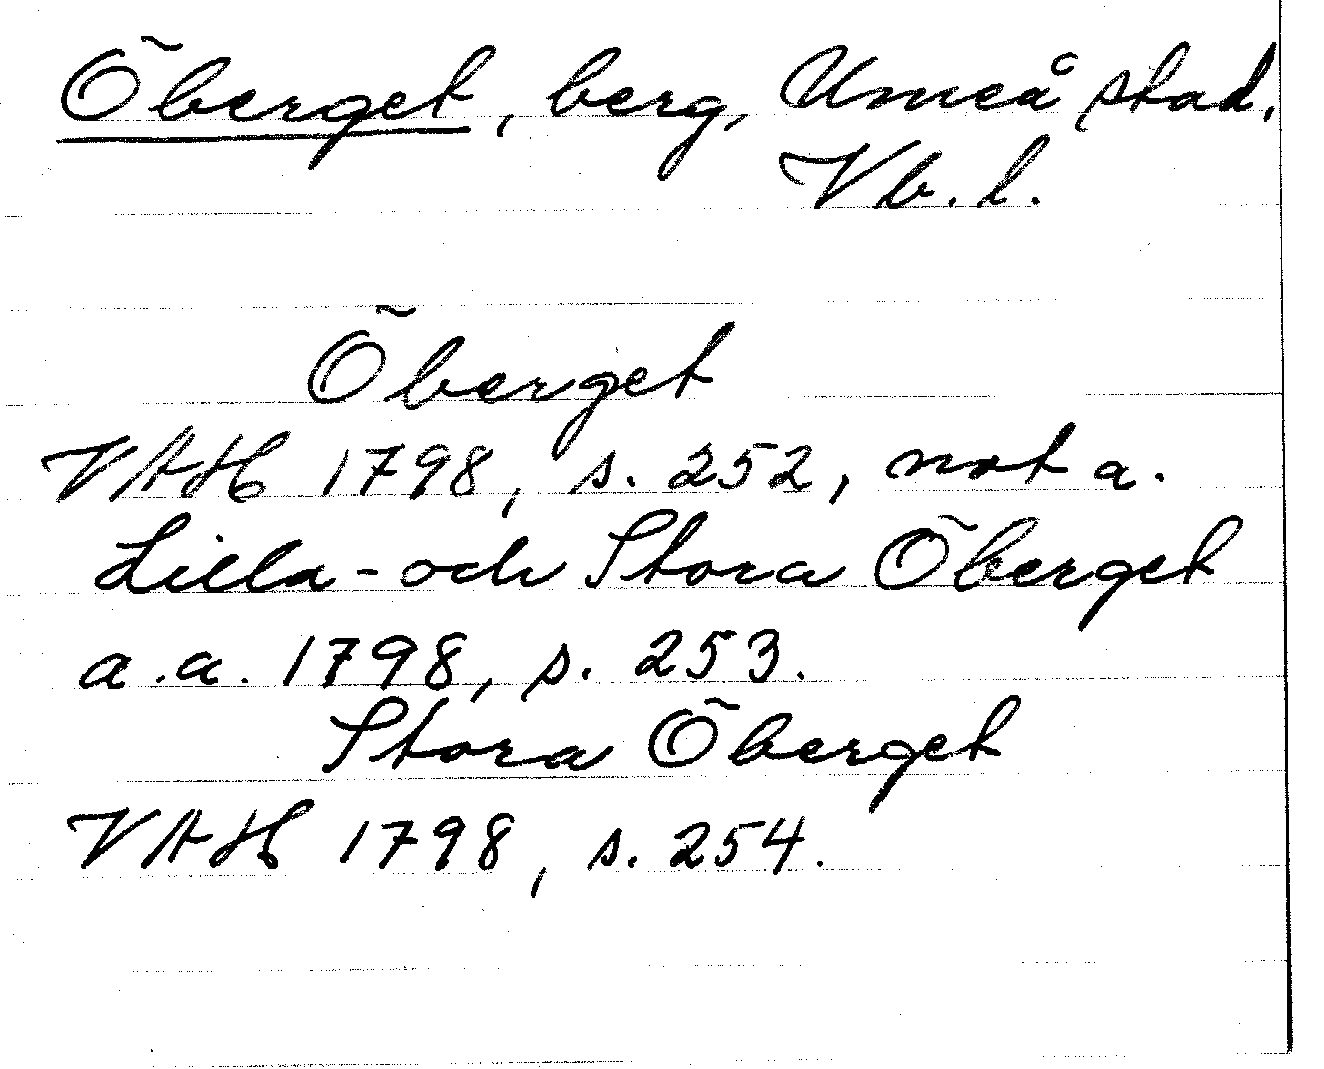 Öberget, berg, Umeå stad,
Vb. l.
Öberget
VAH 1798, s. 252, not a.
Lilla- och Stora Öberget
a.a. 1798, s. 253.
Stora Öberget
VAH 1798, s. 254.